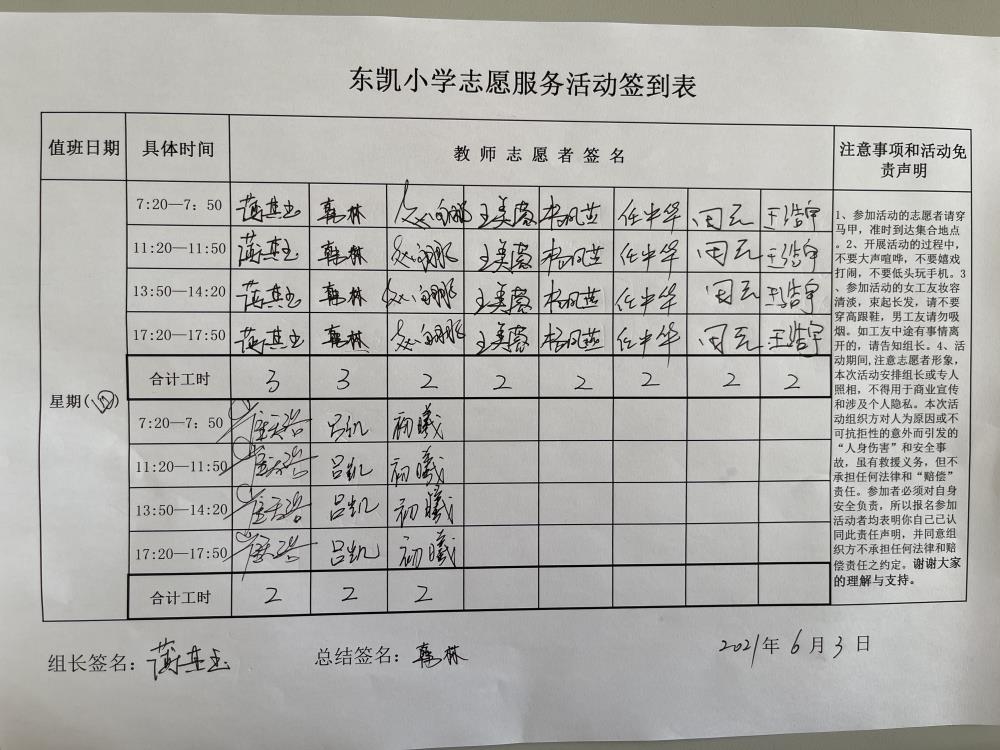 东凯小学志愿服务活动签到表
值班日期 具体时间 教师志愿者签名 注意事项和活动免责声明
星期(四)
7:20—7:50 韩林 王美蓉 任中华 闫云 王浩宇
11:20—11:50 韩林 王美蓉 任中华 闫云 王浩宇
13:50—14:20 韩林 王美蓉 任中华 闫云 王浩宇
17:20—17:50 韩林 王美蓉 任中华 闫云 王浩宇
合计工时 3 3 2 2 2 2 2 2
7:20—7:50 吕凯 初曦
11:20—11:50 吕凯 初曦
13:50—14:20 吕凯 初曦
17:20—17:50 吕凯 初曦
合计工时 2 2 2
1、参加活动的志愿者请穿
马甲，准时到达集合地点
。2、开展活动的过程中，
不要大声喧哗，不要嬉戏
打闹，不要低头玩手机。3
、参加活动的女工友妆容
清淡，束起长发，请不要
穿高跟鞋，男工友请勿吸
烟。如工友中途有事情离
开的，请告知组长。4、活
动期间,注意志愿者形象，
本次活动安排组长或专人
照相，不得用于商业宣传
和涉及个人隐私。本次活
动组织方对人为原因或不
可抗拒性的意外而引发的
“人身伤害”和安全事
故，虽有救援义务，但不
承担任何法律和“赔偿”
责任。参加者必须对自身
安全负责，所以报名参加
活动者均表明你自己已认
同此责任声明，并同意组
织方不承担任何法律和赔
偿责任之约定。谢谢大家
的理解与支持。
组长签名： 总结签名：韩林 2021年6月3日